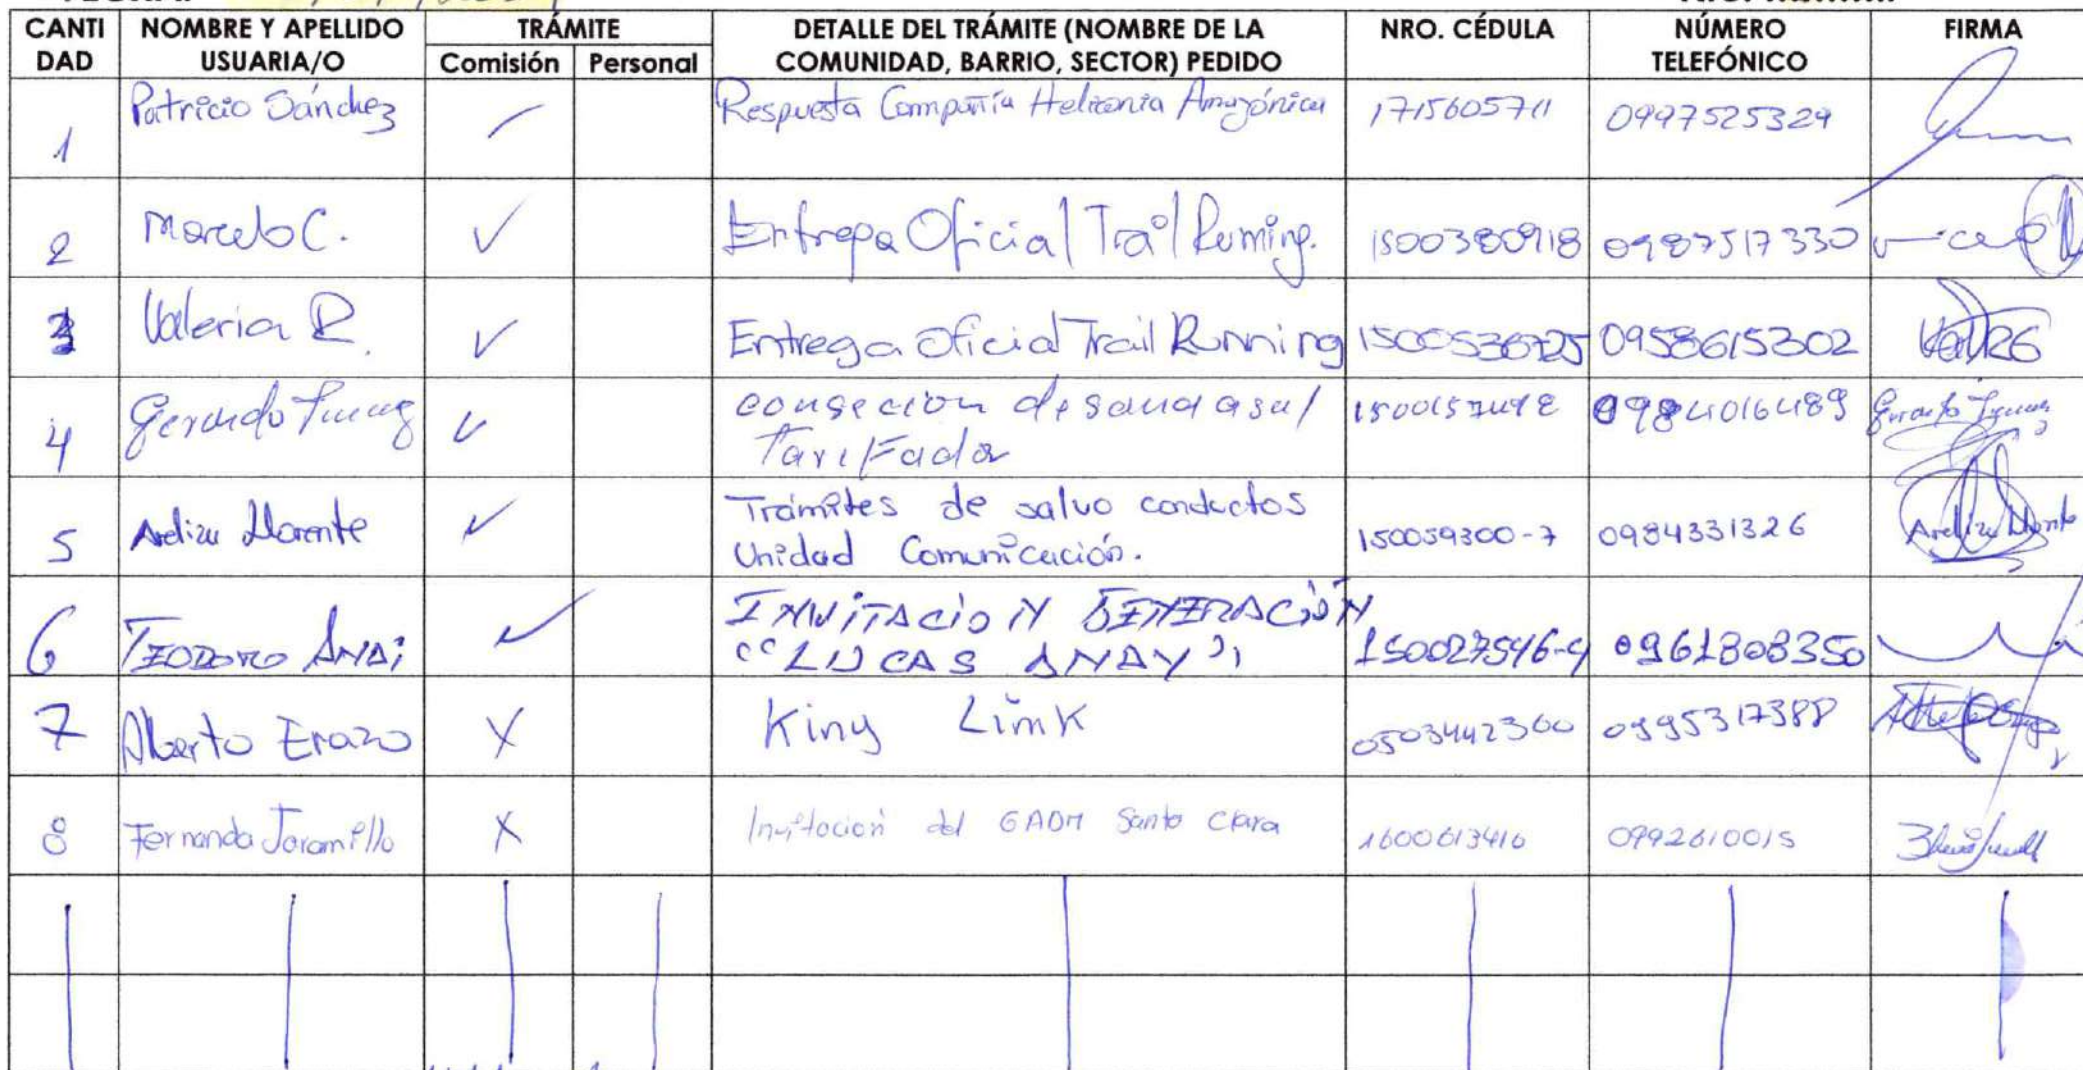 CANTI DAD NOMBRE Y APELLIDO USUARIA/O TRÁMITE Comisión Personal DETALLE DEL TRÁMITE (NOMBRE DE LA COMUNIDAD, BARRIO, SECTOR) PEDIDO NRO. CÉDULA NÚMERO TELEFÓNICO FIRMA
1 Patricio Sánchez Respuesta Compañía Heliconia Amazónica 1715605711 0997525329
2 Marcelo C. ✓ Entrega Oficial Trail Runing. 1500380918 0987517330
3 Valeria R. ✓ Entrega Oficial Trail Running 1500536725 0958615302
4 Gerardo ✓ 0984016489 Gerardo
Tarifador
5 Llorente ✓ Trámites de salvo conductos 150059300-7 0984331326
Unidad Comunicación.
6 TEODORO ANDi ✓ INVITACIÓN GENERACIÓN 150027546-4 0961808350
"LUCAS ANDY"
7 Alberto Erazo X King Link 0503442360 0995317388
8 Fernanda Jaramillo X Invitación del GADM Santa Clara 1600613416 0992610015